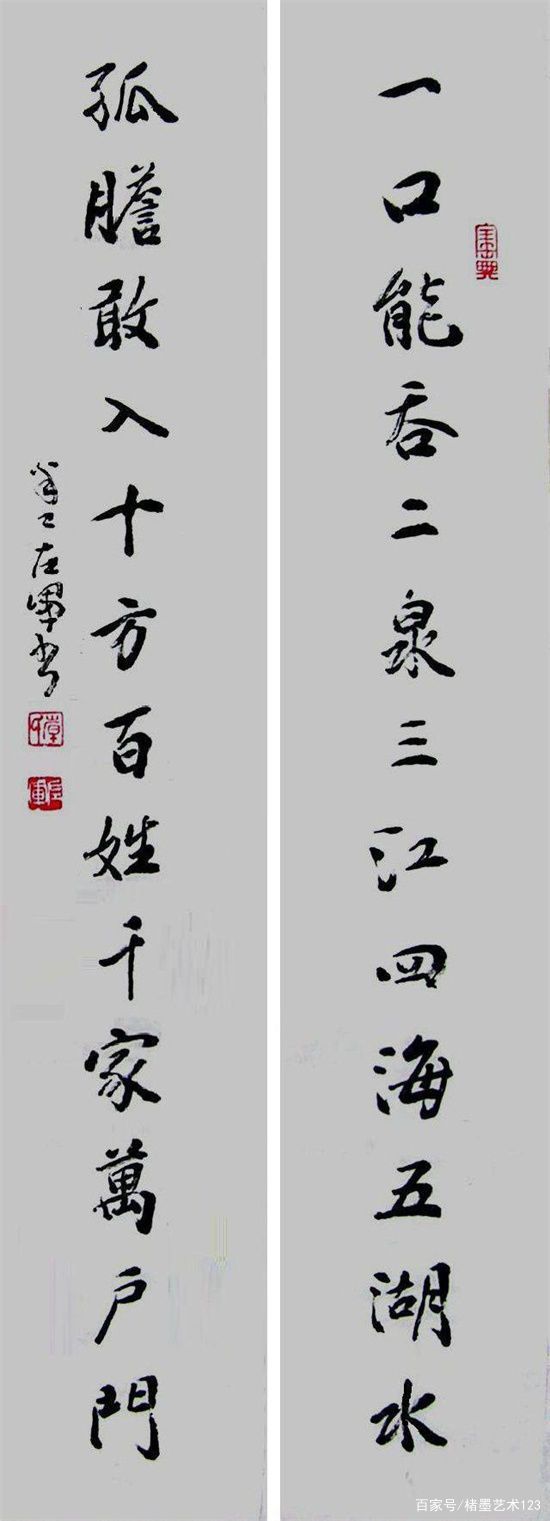 一口能吞二泉三江四海五湖水
孤膽敢入十方百姓千家萬戶門
百家号/楮墨艺术123